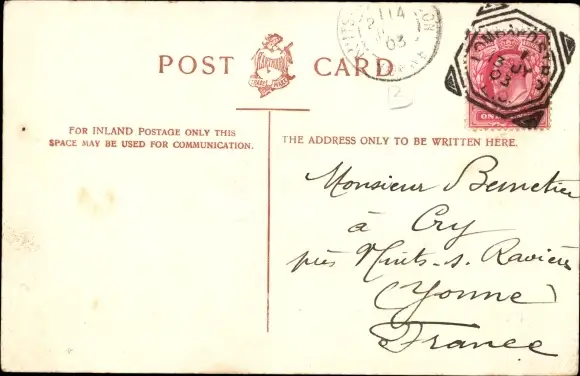 POST CARD
FOR INLAND POSTAGE ONLY THIS
SPACE MAY BE USED FOR COMMUNICATION.
THE ADDRESS ONLY TO BE WRITTEN HERE.
Monsieur
à Cry
près Nuits-s. Ravières
(Yonne)
France
114
03
B